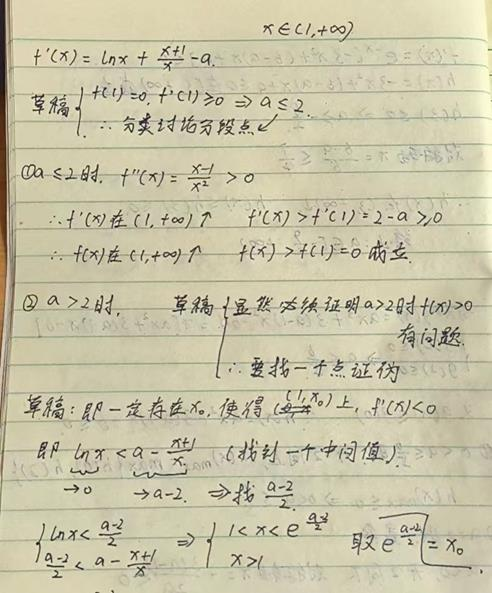 x∈(1,+∞)
f'(x)=lnx+\frac{x+1}{x}-a.
草稿 { f(1)=0, f'(1)≥0 ⇒ a≤2.
∴分类讨论分段点↙
①a≤2时. f''(x)=\frac{x-1}{x^2}>0
∴f'(x)在(1,+∞)↑ f'(x)>f'(1)=2-a≥0
∴f(x)在(1,+∞)↑ f(x)>f(1)=0 成立.
②a>2时, 草稿 { 显然必须证明a>2时f(x)>0
有问题.
∴要找一个点证伪
草稿:即一定存在x₀,使得(1,x₀)上,f'(x)<0
即 lnx<a-\frac{x+1}{x}. (找到一个中间值)
→0 →a-2. ⇒找\frac{a-2}{2}
{ lnx<\frac{a-2}{2} ⇒ { 1<x<e^{\frac{a-2}{2}} 取e^{\frac{a-2}{2}}=x₀
\frac{a-2}{2}<a-\frac{x+1}{x} x>1